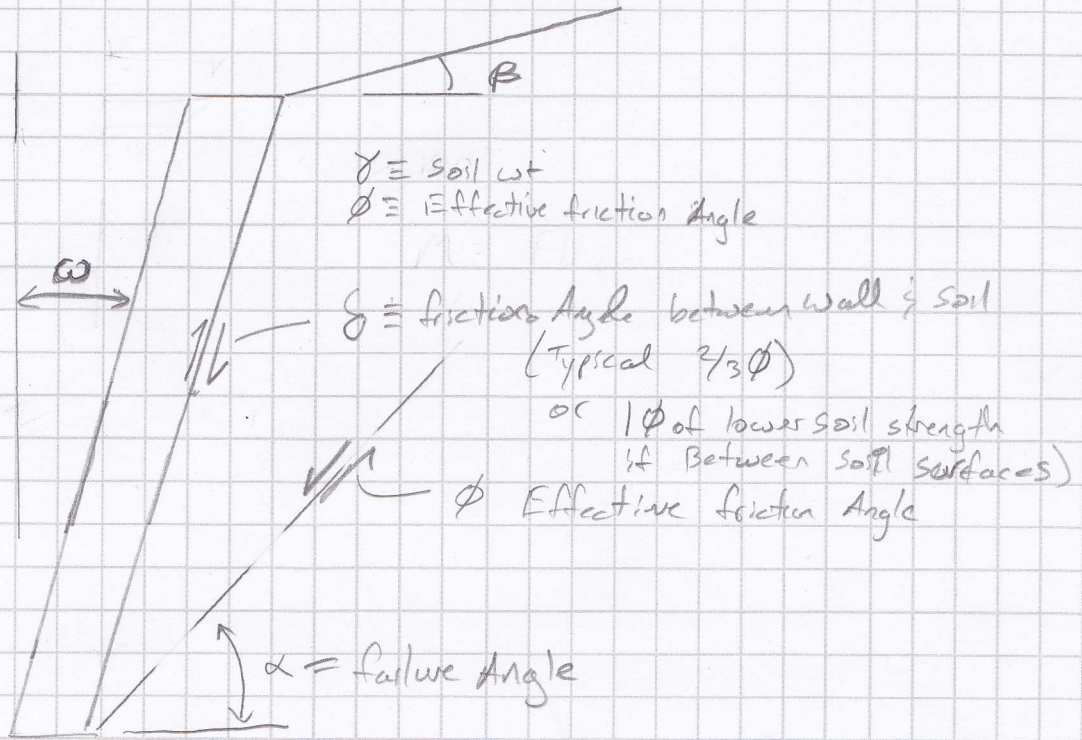 β
γ ≡ Soil wt
φ ≡ Effective friction Angle
ω
δ ≡ friction Angle between wall & soil
(Typical 2/3φ)
or 1φ of lower soil strength
if Between soil surfaces)
φ Effective friction Angle
α = failure Angle